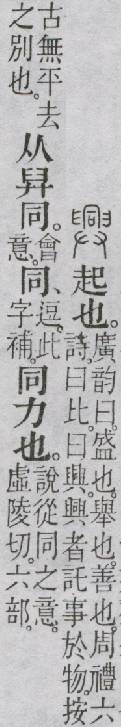 興 起也。廣韵曰。盛也。舉也。善也。周禮六詩。曰比。曰興。興者託事於物。按
古無平去之別也。从舁同。會意。同、逗。此字補。同力也。說從同之意。虛陵切。六部。